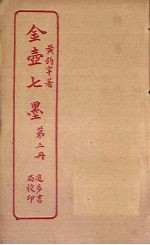 黃鈞宰著
金壺七墨
第二冊
進步書
局校印